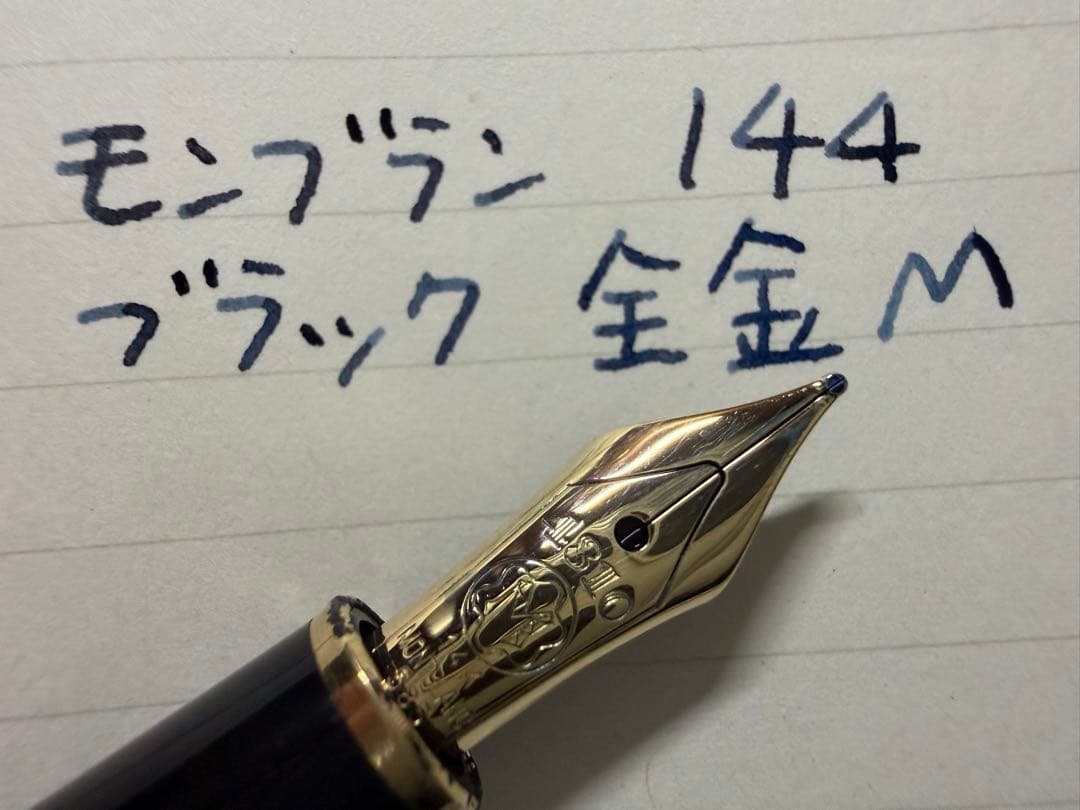 モンブラン 144
ブラック 全金 M
4810
M
14K